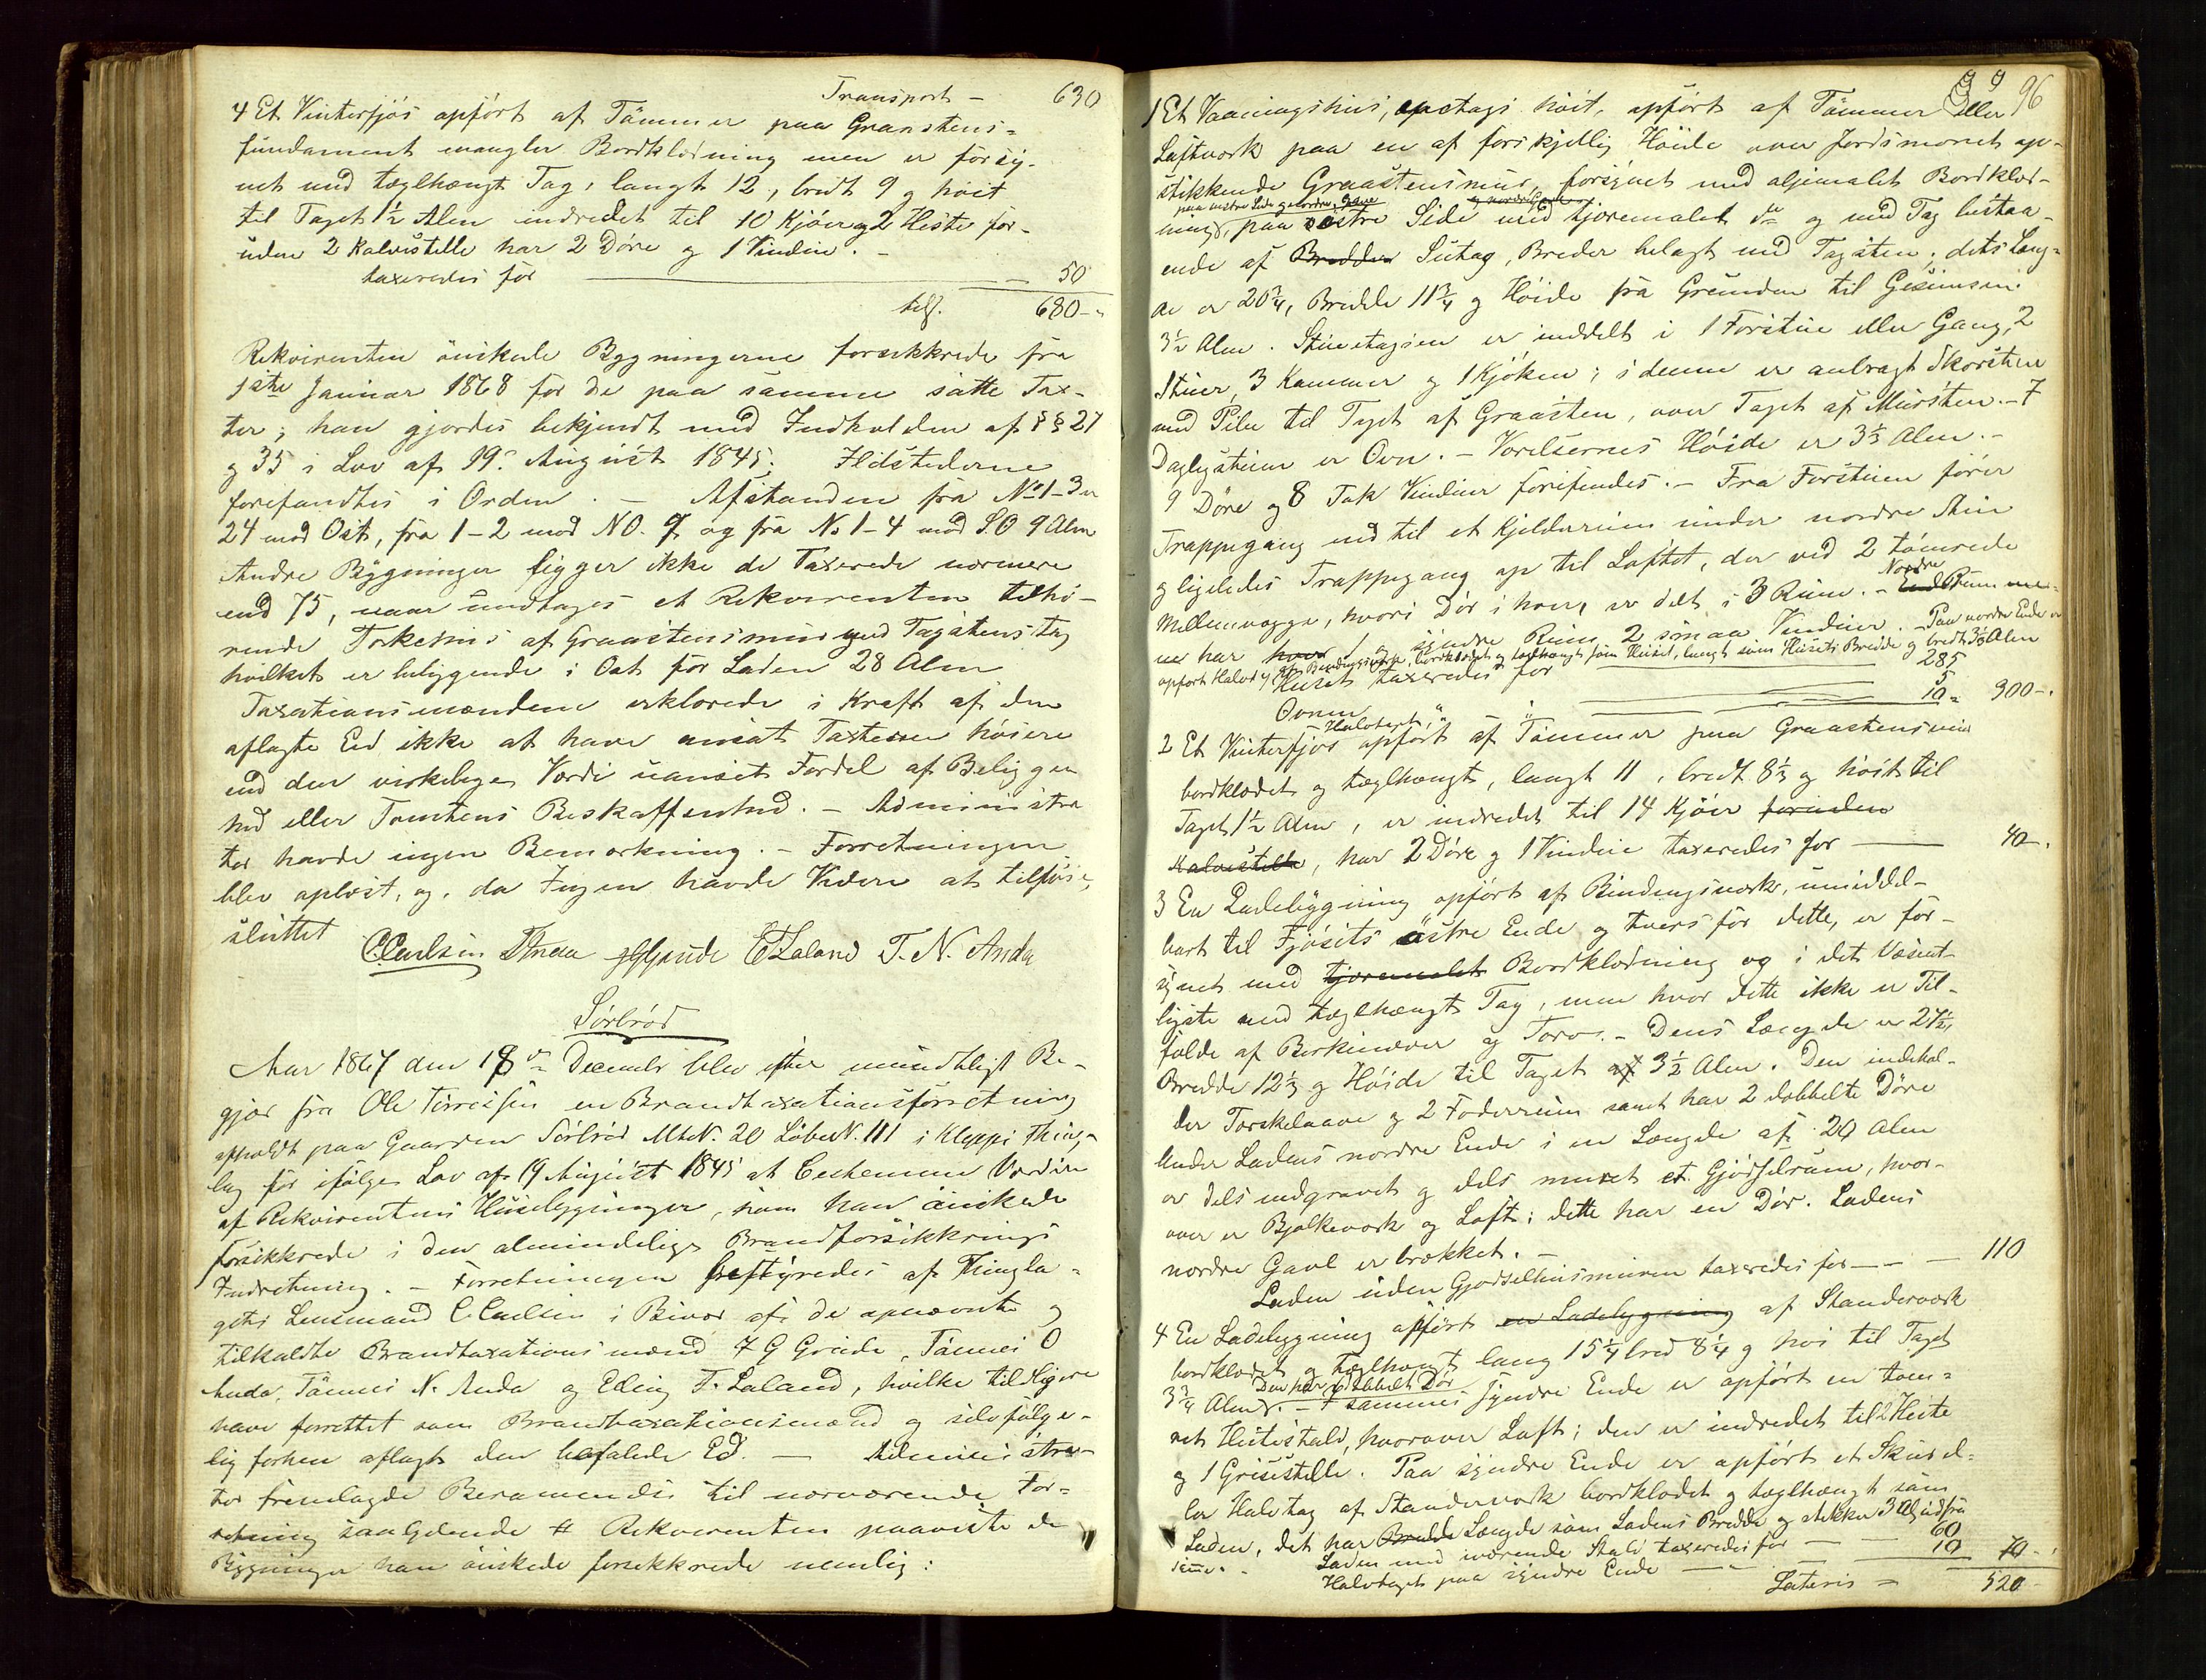 Transport – 630
4 Et Vinterfjøs opført af Tømmer paa Graastens-
fundament mangler Bordklædning men er forsy-
net med tæglhængt Tag, langt 12, bredt 9 og høit
til Taget 1½ Alen indredet til 10 Kjøer og 2 Heste for-
uden 2 Kalvestelle har 2 Døre og 1 Vindue. –
taxeredes for – 50
tils. 680 – "
Rekvirenten ønskede Bygningerne forsikkrede fra
1ste Januar 1868 for de paa samme satte Tax-
ter; han gjordes bekjendt med Indholden af §§ 27
og 35 i Lov af 19. August 1845; Ildstederne
forefandtes i Orden. – Afstanden fra No 1–3 er
24 mod Ost, fra 1–2 mod NO. 9 og fra No 1–4 mod S.O 9 Alen
Andre Bygninger ligger ikke de Taxerede nærmere
end 75, naar undtages et Rekvirenten tilhø-
rende Torkehus af Graastensmur med Tagstens tag
hvilket er beliggende i Ost for Laden 28 Alen
Taxationsmændene erklærede i Kraft af den
aflagte Eed ikke at have ansat Taxterne høiere
end den virkelige Værdi uanset Fordel af Beliggen
hed eller Tomtens Beskaffenhed. – Administra
tor havde ingen Bemærkning. – Forretningen
blev oplæst, og, da Ingen havde Videre at tilføie,
sluttet
C. Carlsen T Anda GGGrude E T Laland T. N. Anda
Sørbrød
Aar 1867 den 18de December blev efter mundtligt Be-
gjær fra Ole Tørresen en Brandtaxationsforretning
afholdt paa Gaarden Sørbrød Mt. N. 20 Løbe N. 111 i Kleppe Thing-
lag for ifølge Lov af 19 August 1845 at bestemme Værdien
af Rekvirentens Huusbygninger, som han ønskede
forsikkrede i den almindelige Brandforsikkrings
Indretning. – Forretningen bestyredes af Thingla-
gets Lensmand C. Carlsen i Bivær af de opnævnte og
tilkaldte Brandtaxationsmænd 7 G Grude, Tønnes O
Anda, Tønnes N. Anda og Elling T. Laland, hvilke tidligere
have forrettet som Brandtaxationsmænd og selvfølge-
lig forhen aflagt den befalede Ed. – Administra-
tor fremlagde Berammelse til nærværende For-
retning saalydende # Rekvirenten paaviste de
Bygninger han ønskede forsikkrede nemlig:
96
1 Et Vaaningshus, enetages høit, opført af Tømmer eller
Laftværk paa en af forskjellig Høide over Jordsmonet op-
stikkende Graastensmur, forsynet med oljemalet Bordklæd-
paa vestre Side og nordre Gavl
ning, paa østre Side med tjæremalet do og med Tag bestaa-
ende af Bredder Sutag, Breder belagt med Tagsten; dets Læng-
de er 20¾, Bredde 11¾ og Høide fra Grunden til Gesimsen
3½ Alen. Stueetagen er inddelt i 1 Forstue eller Gang, 2
Stuer, 3 Kammer og 1 Kjøken; i denne er anbragt Skorsten
med Pibe til Taget af Graasten, over Taget af Mursten. – I
Daglystuen er Ovn. – Værelsernes Høide er 3⅓ Alen. –
9 Døre og 8 Fak Vinduer forefindes. – Fra Forstuen fører
Trappegang ned til et Kjelderrum under nordre Stue
og ligeledes Trappegang op til Loftet, der ved 2 tømrede
Mellemvægge, hvori Dør i hver, er delt i 3 Rum. – Nordre Ende Rum
har hver 1 og syndre Rum 2 smaa Vinduer. – Paa nordre Ende er
opført Halvtag af Bindingsværk, bordklædt og tæglhængt som Huset, langt som Husets Bredde og bredt 3½ Alen
Huset taxeredes for 285
Ovnen " 5
Halvtaget " 10 " 300 – "
2 Et Vinterfjøs opført af Tømmer paa Graastensmur
bordklædt og tæglhængt, langt 11, bredt 8⅓ og høit til
Taget 1½ Alen, er indredet til 14 Kjøer foruden
Kalvestelle, har 2 Døre og 1 Vindue taxeredes for – 40 – "
3 En Ladebygning opført af Bindingsværk, umiddel-
bart til Fjøsets østre Ende og tvers for dette, er for-
synet med tjæremalet Bordklædning og i det Væsent-
ligste med tæglhængt Tag, men hvor dette ikke er Til-
fælde af Birkenæver og Torv. – Dens Længde er 27½,
Bredde 12⅓ og Høide til Taget af 3½ Alen. Den indehol-
der Tærskelaave og 2 Foderrum samt har 2 dobbelte Døre
Under Ladens nordre Ende i en Længde af 20 Alen
er dels nedgravet og dels muret et Gjødselrum, hvor-
over er Bjelkeværk og Loft; dette har en Dør. Ladens
nordre Gavl er brækket. –
Laden uden Gjødselhusmuren taxeredes for – – 110
4 En Ladebygning opført en Ladebygning af Standerværk
bordklædt og tæglhængt lang 15¼ bred 8¼ og høi til Taget
3¾ Alen. Den har 1 dobbelt Dør – I sammes syndre Ende er opført en tøm-
ret Hestestald, hvorover Loft; den er indredet til 2 Heste
og 1 Grisestelle. Paa syndre Ende er opført et Skuur el-
ler Halvtag af Standerværk bordklædt og tæglhængt som
Laden, det har Bredde Længde som Ladens Bredde og stikker 3 Al. ud fra
samme. – Laden med iværende Stald taxeredes for – 60
Halvtaget paa syndre Ende – " 10 70 – "
Lateris – 520